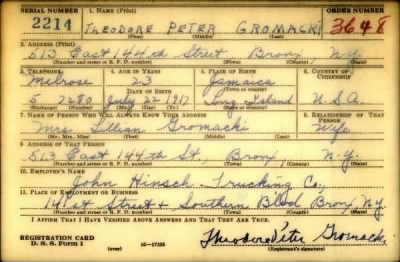 SERIAL NUMBER 1. NAME (Print) ORDER NUMBER
2214 THEODORE PETER GROMACKI 3648
(First) (Middle) (Last)
2. ADDRESS (Print)
513 East 144th Street Bronx N.Y.
(Number and street or R. F. D. number) (Town) (County) (State)
3. TELEPHONE 4. AGE IN YEARS 5. PLACE OF BIRTH 6. COUNTRY OF CITIZENSHIP
Melrose 23 Jamaica
DATE OF BIRTH
5 7280 July 22 1917 Long Island U.S.A.
(Exchange) (Number) (Mo.) (Day) (Yr.) (State or country)
7. NAME OF PERSON WHO WILL ALWAYS KNOW YOUR ADDRESS 8. RELATIONSHIP OF THAT PERSON
Mrs. Lillian Gromacki Wife
(Mr., Mrs., Miss) (First) (Middle) (Last)
9. ADDRESS OF THAT PERSON
513 East 144th St., Bronx N.Y.
(Number and street or R. F. D. number) (Town) (County) (State)
10. EMPLOYER'S NAME
John Hinsch Trucking Co.,
11. PLACE OF EMPLOYMENT OR BUSINESS
141st Street & Southern Blvd Bronx, NY
(Number and street or R. F. D. number) (Town) (County) (State)
I AFFIRM THAT I HAVE VERIFIED ABOVE ANSWERS AND THAT THEY ARE TRUE.
REGISTRATION CARD
D. S. S. Form 1 16—17105 Theodore Peter Gromacki
(over) (Registrant's signature)